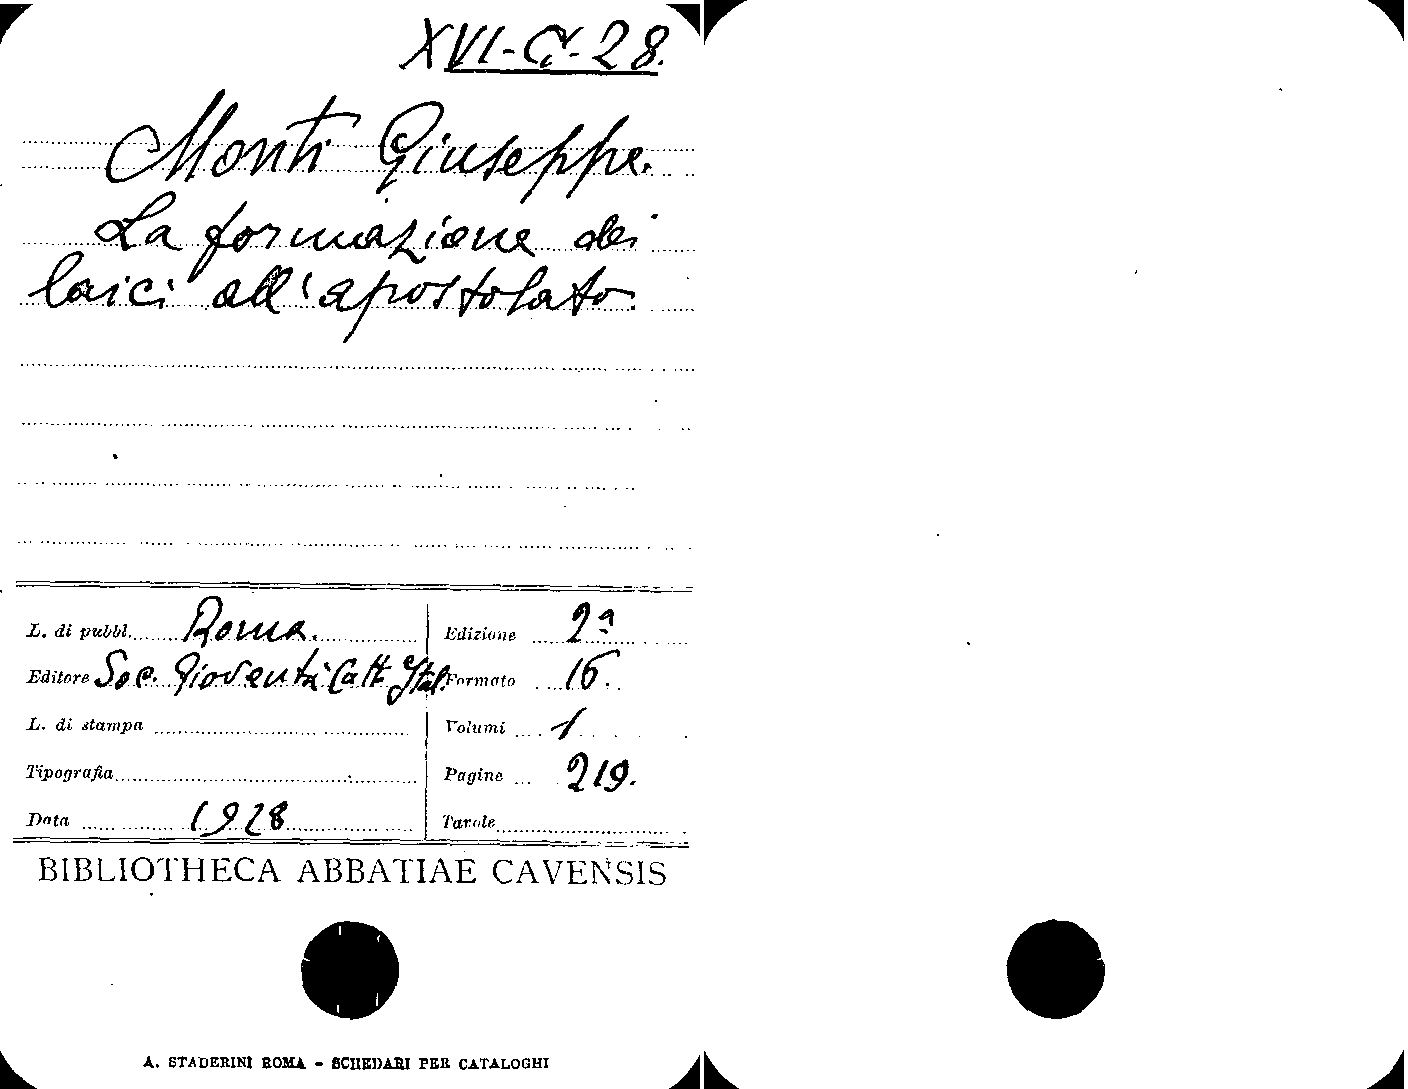 XVI-G-28.
Monti Giuseppe.
La formazione dei
laici all'apostolato.
L. di pubbl. Roma.
Edizione 2ª
Editore Soc. Gioventù Catt. Ital.
Formato 16.
L. di stampa
Volumi 1
Tipografia
Pagine 219.
Data 1928
Tavole
BIBLIOTHECA ABBATIAE CAVENSIS
A. STADERINI ROMA - SCHEDARI PER CATALOGHI